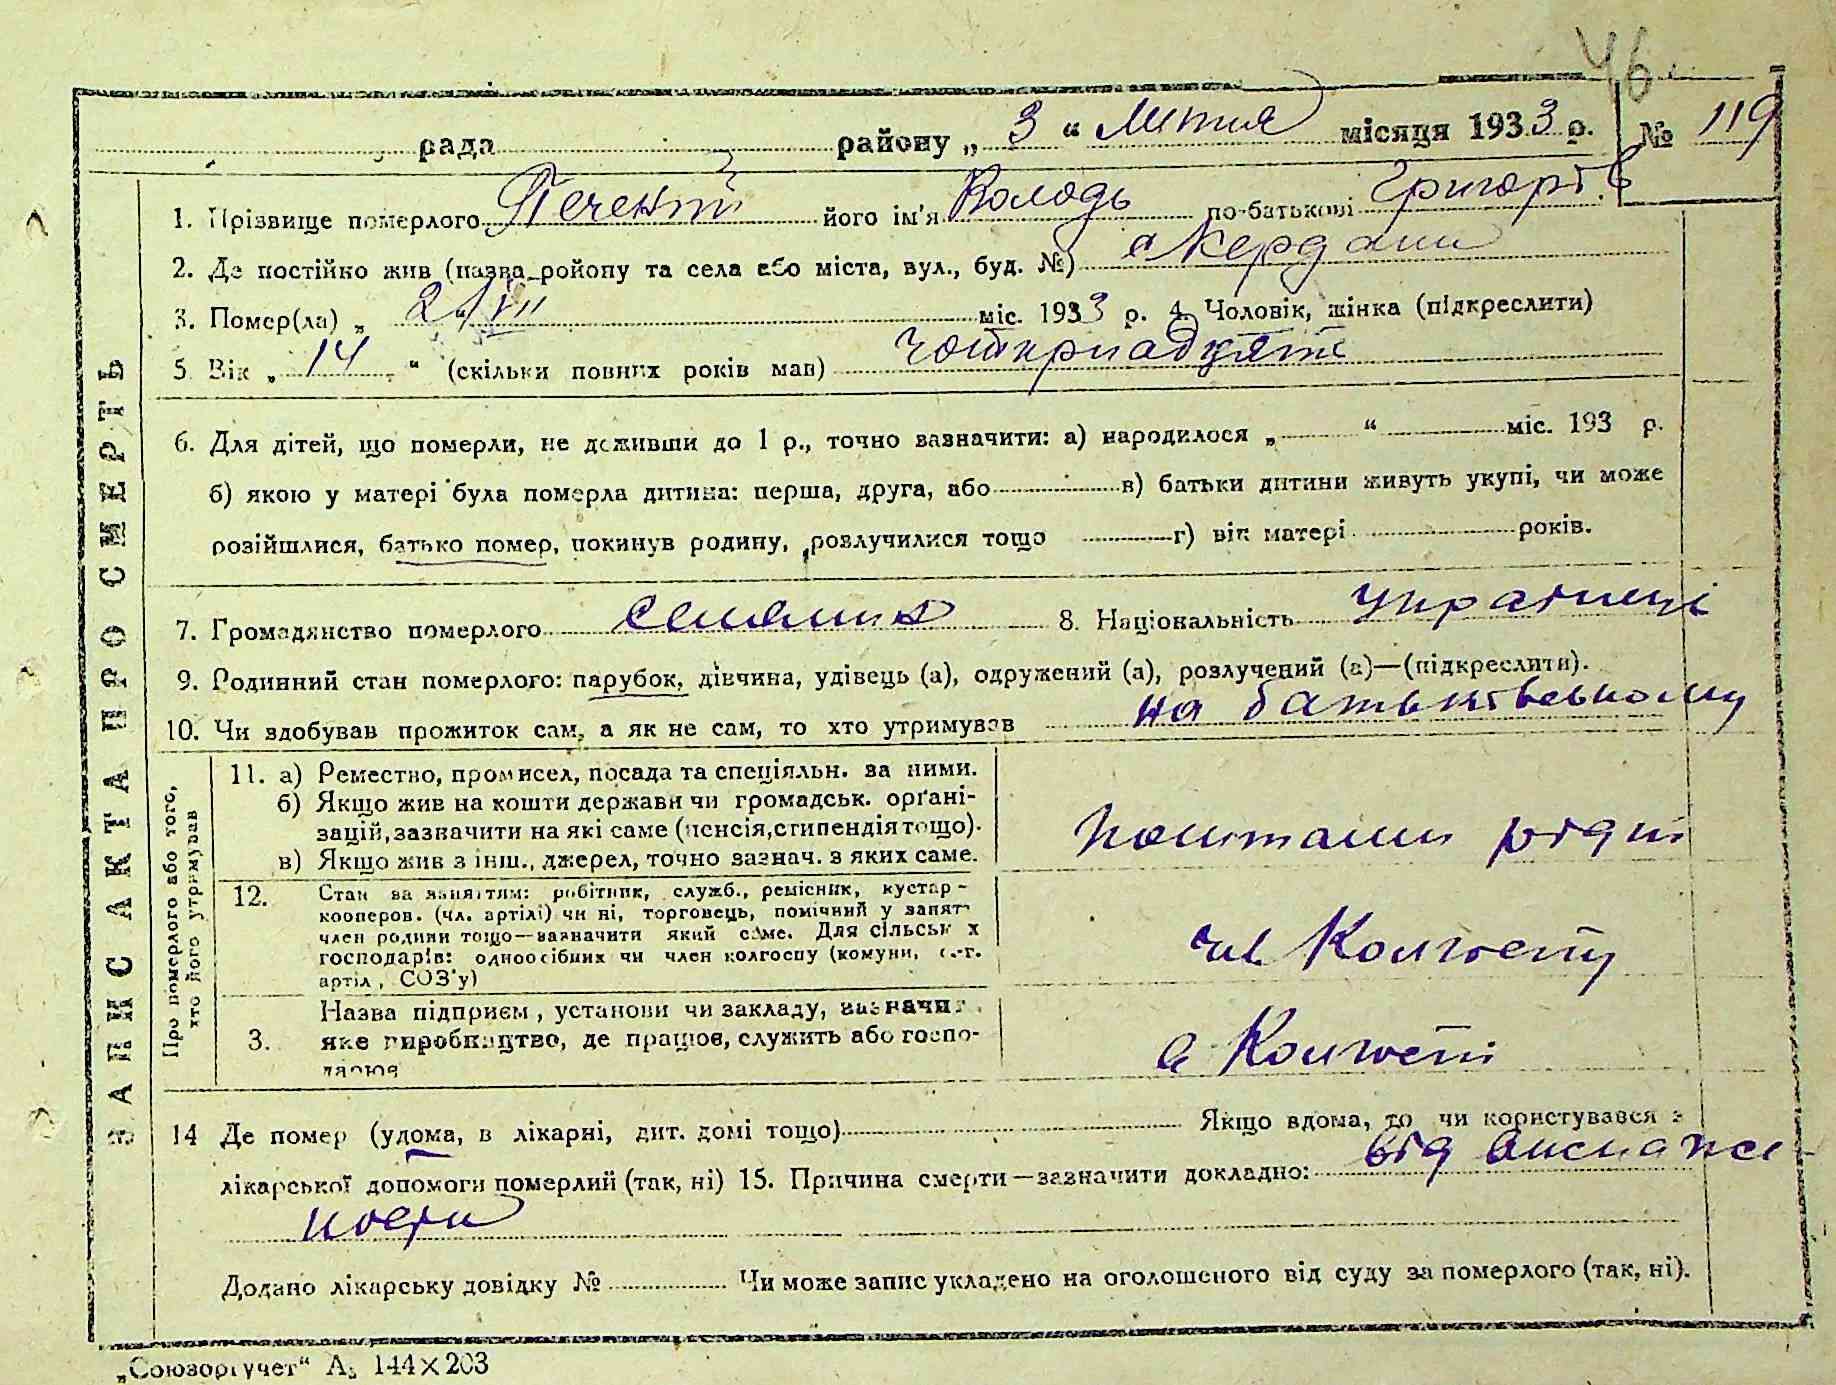 46
рада района „ 3 “ Липня місяця 1933 р. № 119
1. Прізвище померлого Печений його ім'я Володь по-батькові Григорів
2. Де постійно жив (назва ройону та села або міста, вул., буд. №) с Кердани
3. Помер(ла) „ 2/VII міс. 1933 р. 4. Чоловік, жінка (підкреслити)
5. Вік „ 14 “ (скільки повних років мав) чотирнадцять
6. Для дітей, що померли, не доживши до 1 р., точно зазначити: а) народилося „ “ міс. 193 р.
б) якою у матері була померла дитина: перша, друга, або в) батьки дитини живуть укупі, чи може
розійшлися, батько помер, покинув родину, розлучилися тощо г) вік матері років.
7. Громадянство померлого селянин 8. Національність
9. Родинний стан померлого: парубок, дівчина, удівець (а), одружений (а), розлучений (а)—(підкреслити).
10. Чи здобував прожиток сам, а як не сам, то хто утримував на
11. а) Реместно, промисел, посада та спеціяльн. за ними.
б) Якщо жив на кошти держави чи громадськ. орґані-
зацій, зазначити на які саме (пенсія, стипендія тощо).
в) Якщо жив з інш., джерел, точно зазнач. з яких саме.
коштами рідні
12. Стан за заняттям: робітник, служб., ремісник, кустар-
кооперов. (чл. артілі) чи ні, торговець, помічний у занят
член родини тощо—зазначити який саме. Для сільськ х
господарів: одноосібник чи член колгоспу (комуни, с.-г.
артіл , СОЗ'у)
чл Колгоспу
3. Назва підприєм , установи чи закладу, зазначи
яке виробництво, де працює, служить або госпо-
дарює
в Колгоспі
14 Де помер (удома, в лікарні, дит. домі тощо) Якщо вдома, то чи користувався з
лікарської допомоги померлий (так, ні) 15. Причина смерти—зазначити докладно: від виснаже-
ности
Додано лікарську довідку № Чи може запис укладено на оголошеного від суду за померлого (так, ні).
„Союзоргучет“ А5 144×203
ЗАПИС АКТА ПРО СМЕРТЬ
Про померлого або того,
хто його утримував